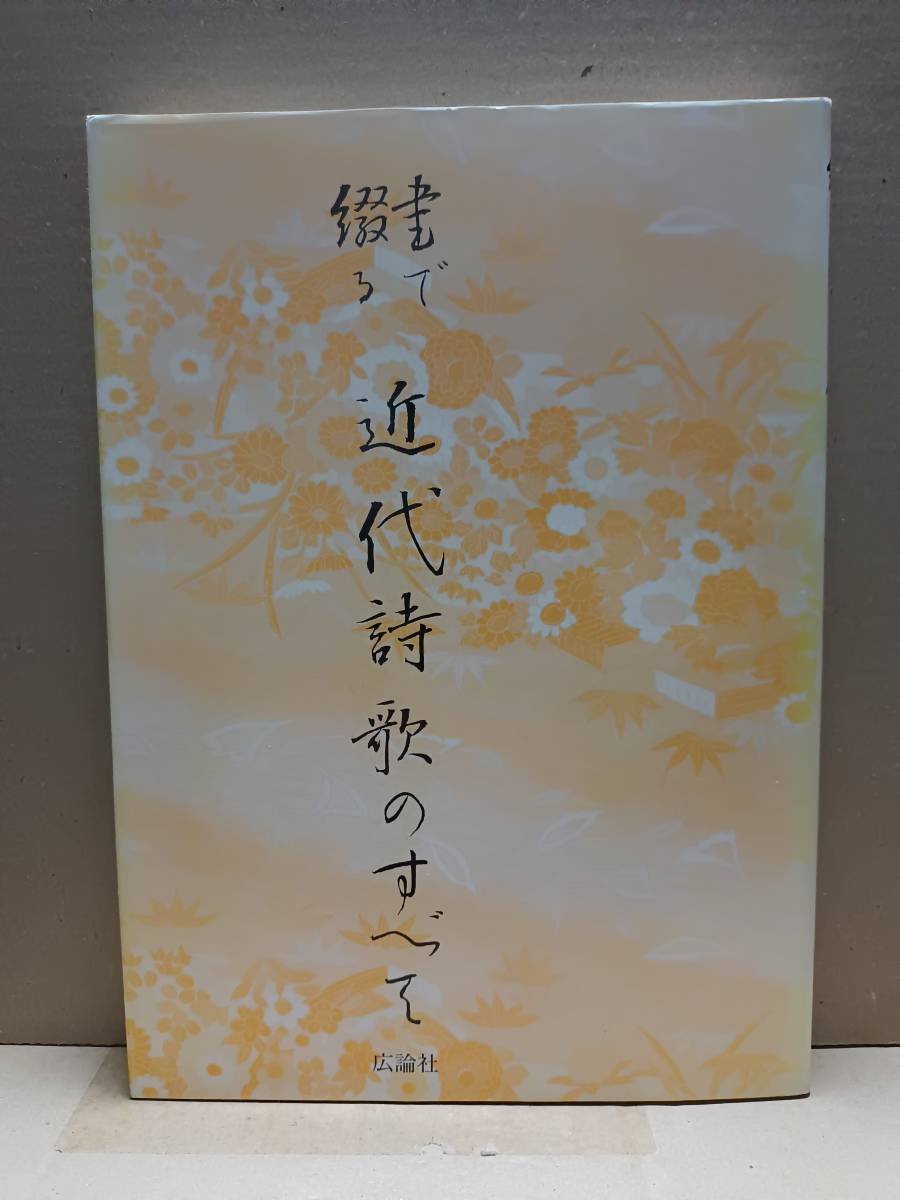 書で
綴る
近代詩歌のすべて
広論社